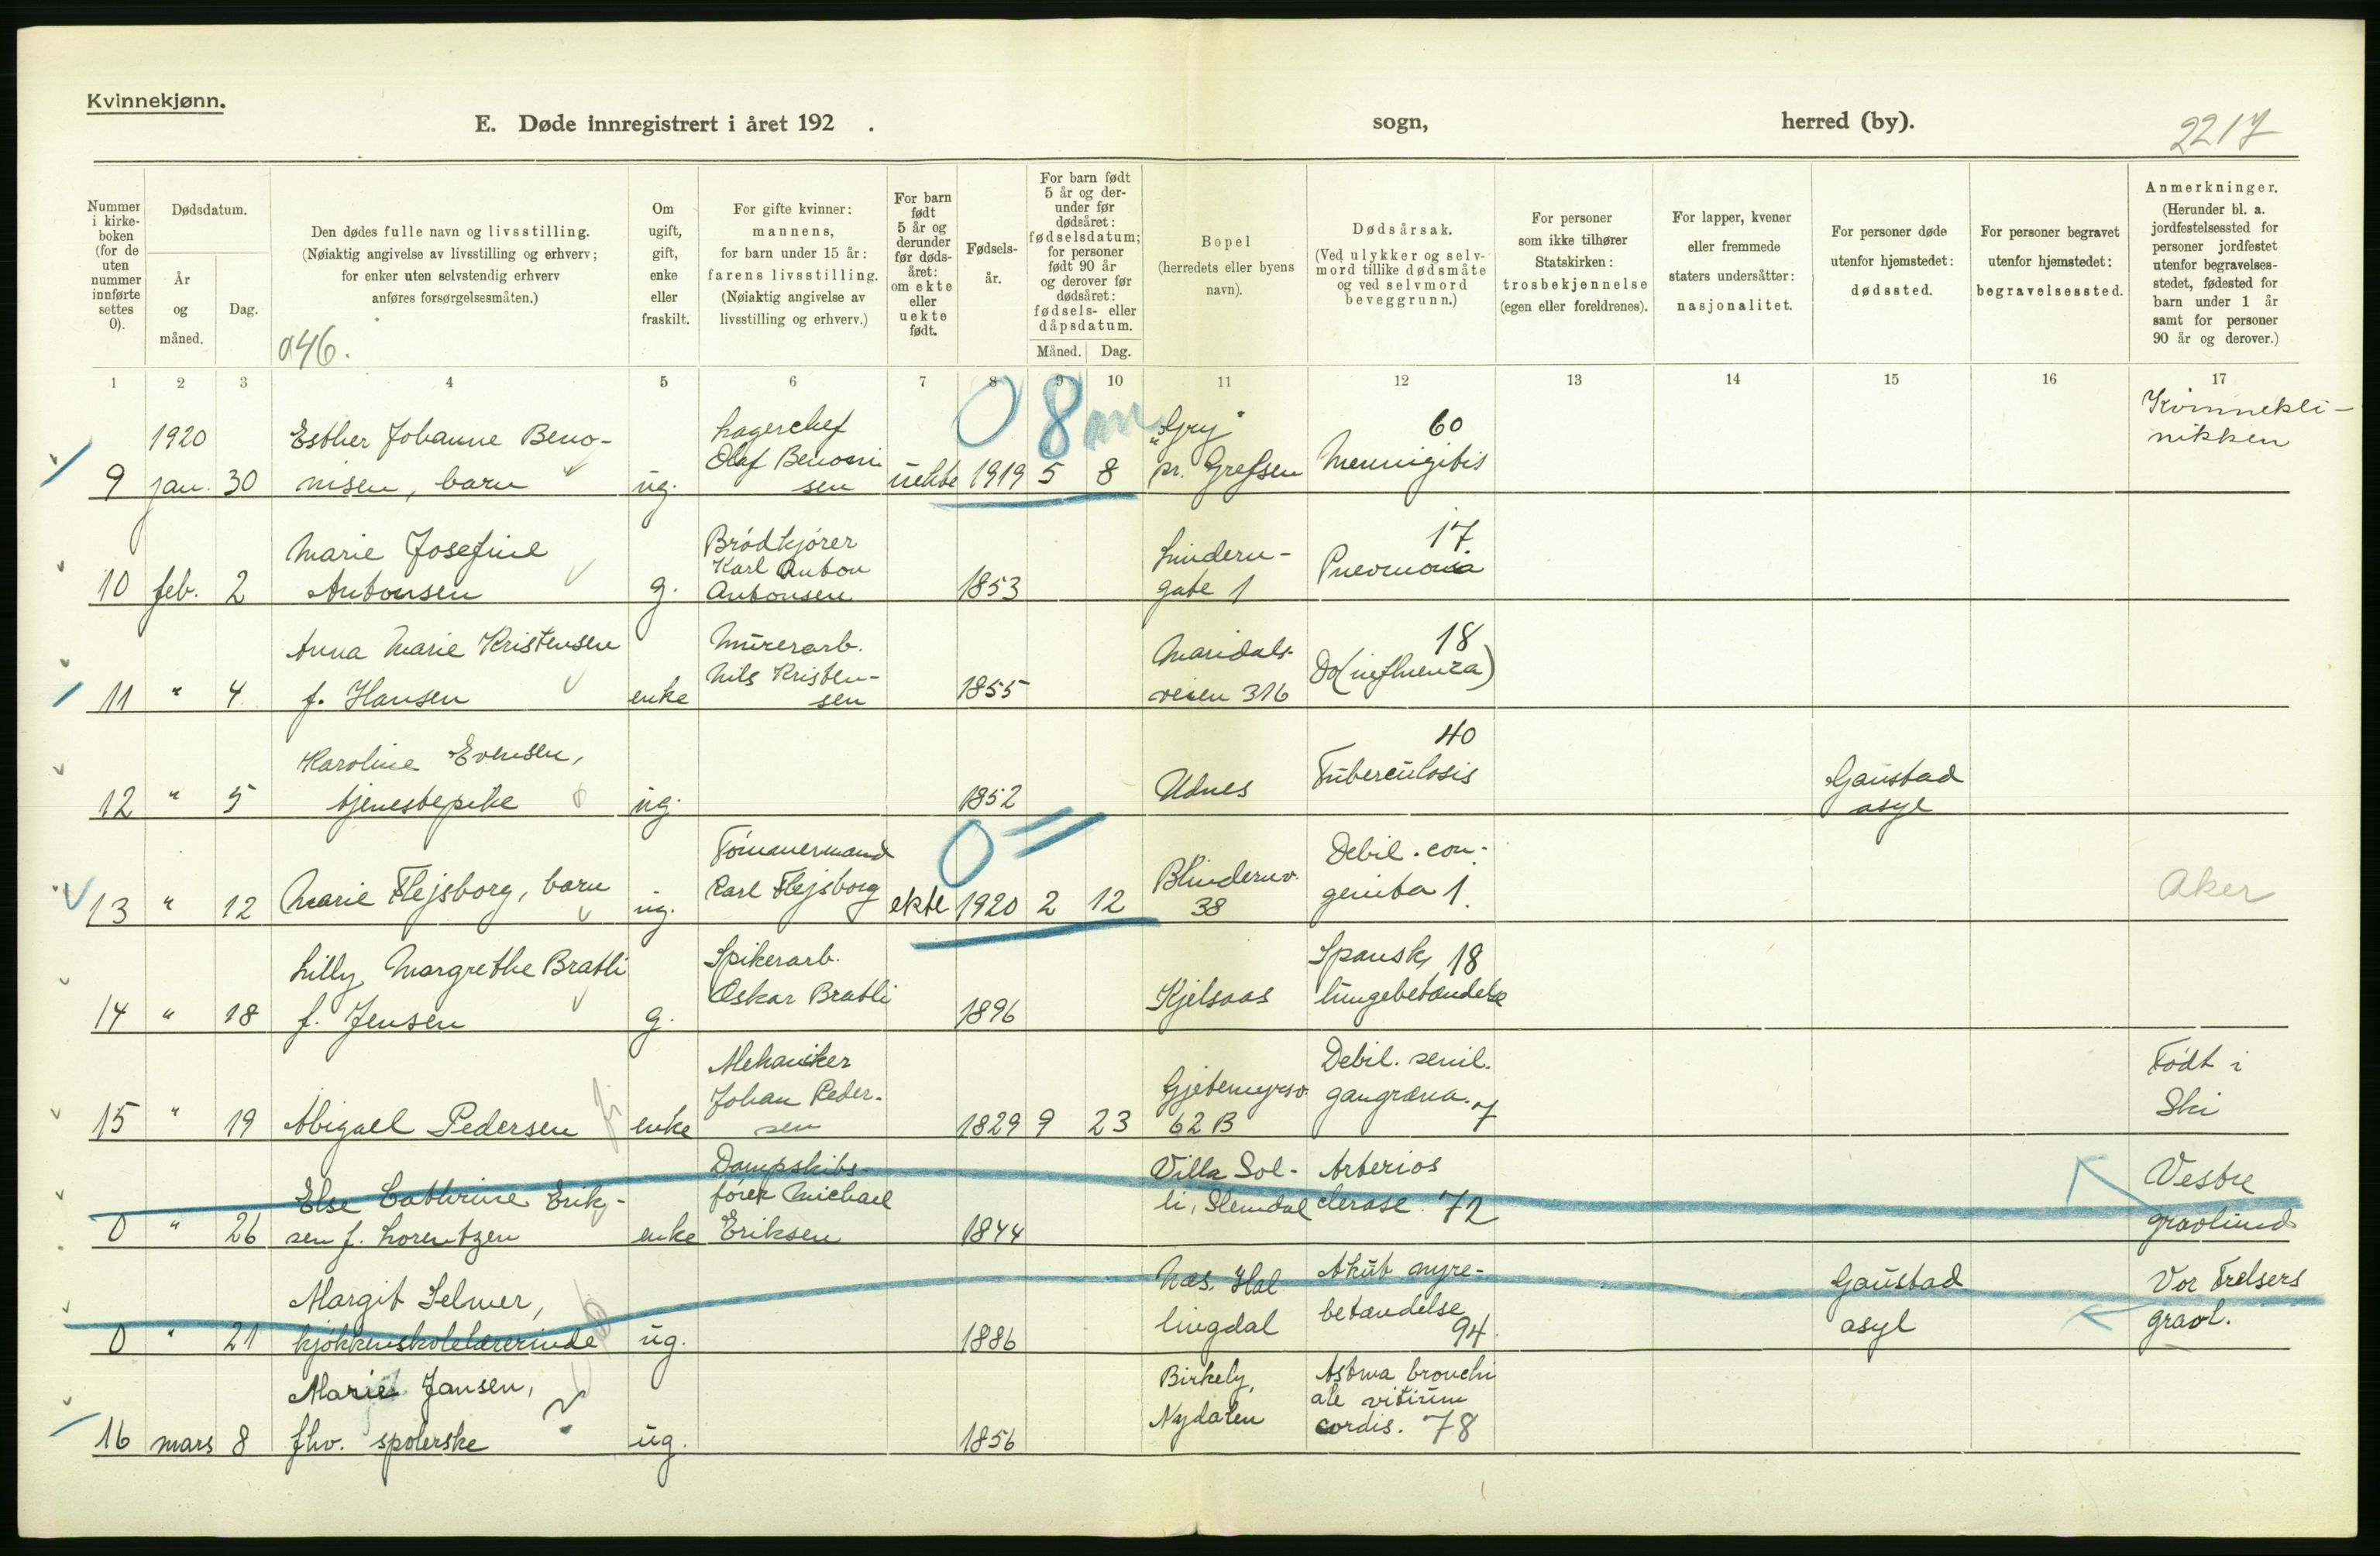 Kvinnekjønn.
E. Døde innregistrert i året 192 .
sogn,
herred (by).
2217
Nummer i kirke-boken (for de uten nummer innførte settes 0).
Dødsdatum.
År og måned.
Dag.
Den dødes fulle navn og livsstilling.
(Nøiaktig angivelse av livsstilling og erhverv;
for enker uten selvstendig erhverv
anføres forsørgelsesmåten.)
a46.
Om ugift, gift, enke eller fraskilt.
For gifte kvinner:
mannens,
for barn under 15 år:
farens livsstilling.
(Nøiaktig angivelse av
livsstilling og erhverv.)
For barn født 5 år og derunder før døds-året: om ekte eller uekte født.
Fødsels-
år.
For barn født 5 år og der-under før dødsåret: fødselsdatum; for personer født 90 år og derover før dødsåret: fødsels- eller dåpsdatum.
Måned. Dag.
Bopel
(herredets eller byens
navn).
Dødsårsak.
(Ved ulykker og selv-
mord tillike dødsmåte
og ved selvmord
beveggrunn.)
For personer
som ikke tilhører
Statskirken:
trosbekjennelse
(egen eller foreldrenes).
For lapper, kvener
eller fremmede
staters undersåtter:
nasjonalitet.
For personer døde
utenfor hjemstedet:
dødssted.
For personer begravet
utenfor hjemstedet:
begravelsessted.
Anmerkninger.
(Herunder bl. a.
jordfestelsessted for
personer jordfestet
utenfor begravelses-
stedet, fødested for
barn under 1 år
samt for personer
90 år og derover.)
1 2 3 4 5 6 7 8 9 10 11 12 13 14 15 16 17
0 8 m
1920 Esther Johanne Beno- Lagerchef "Gry" 60 Kvinnekli-
Olaf Benoni nikken
9 jan. 30 nisen, barn ug. sen uekte 1919 5 8 pr. Grefsen Mennigitis
Marie Josefine Brödkjörer Lindern- 17.
Karl Anton Pneomonia
10 feb. 2 Antonsen g. Antonsen 1853 gate 1
Anna Marie Kristensen Murerarb. Maridals- 18
Nils Kristen- Do (influenza)
11 " 4 f. Hansen enke sen 1855 veien 316
Karoline Evensen, 40
Tuberculosis Gaustad
12 " 5 tjenestepike ug. 1852 Udnes asyl
0 =
Tömmermand Debil. con-
13 " 12 Marie Flejsborg, barn ug. Carl Flejsborg ekte 1920 2 12 Blindernv. genita 1. Aker
38
Lilly Margrethe Bratli Spikerarb. Spansk 18
Oskar Bratli Kjelsaas lungebetændelse
14 " 18 f. Jensen g. 1896
Mekaniker Debil. senil. Födt i
Johan Peder- Gjetemyrsv. gangræna. 7 Ski
15 " 19 Abigael Pedersen enke sen 1829 9 23 62 B
Dampskibs- Villa Sol- Arterios Vestre
Else Cathrine Erik- förer Michael li, Slemdal clerose. 72 gravlund
0 " 26 sen f. Lorentzen enke Eriksen 1844
Margit Selmer, Næs, Hal Akut nyre- Gaustad Vor Frelsers
betændelse
0 " 21 kjökkenskolelærerinde ug. 1886 lingdal 94. asyl gravl.
Marie Jansen, Birkely, Astma bronchi
ale vitium
16 mars 8 fhv. spolerske ug. 1856 Nydalen cordis. 78